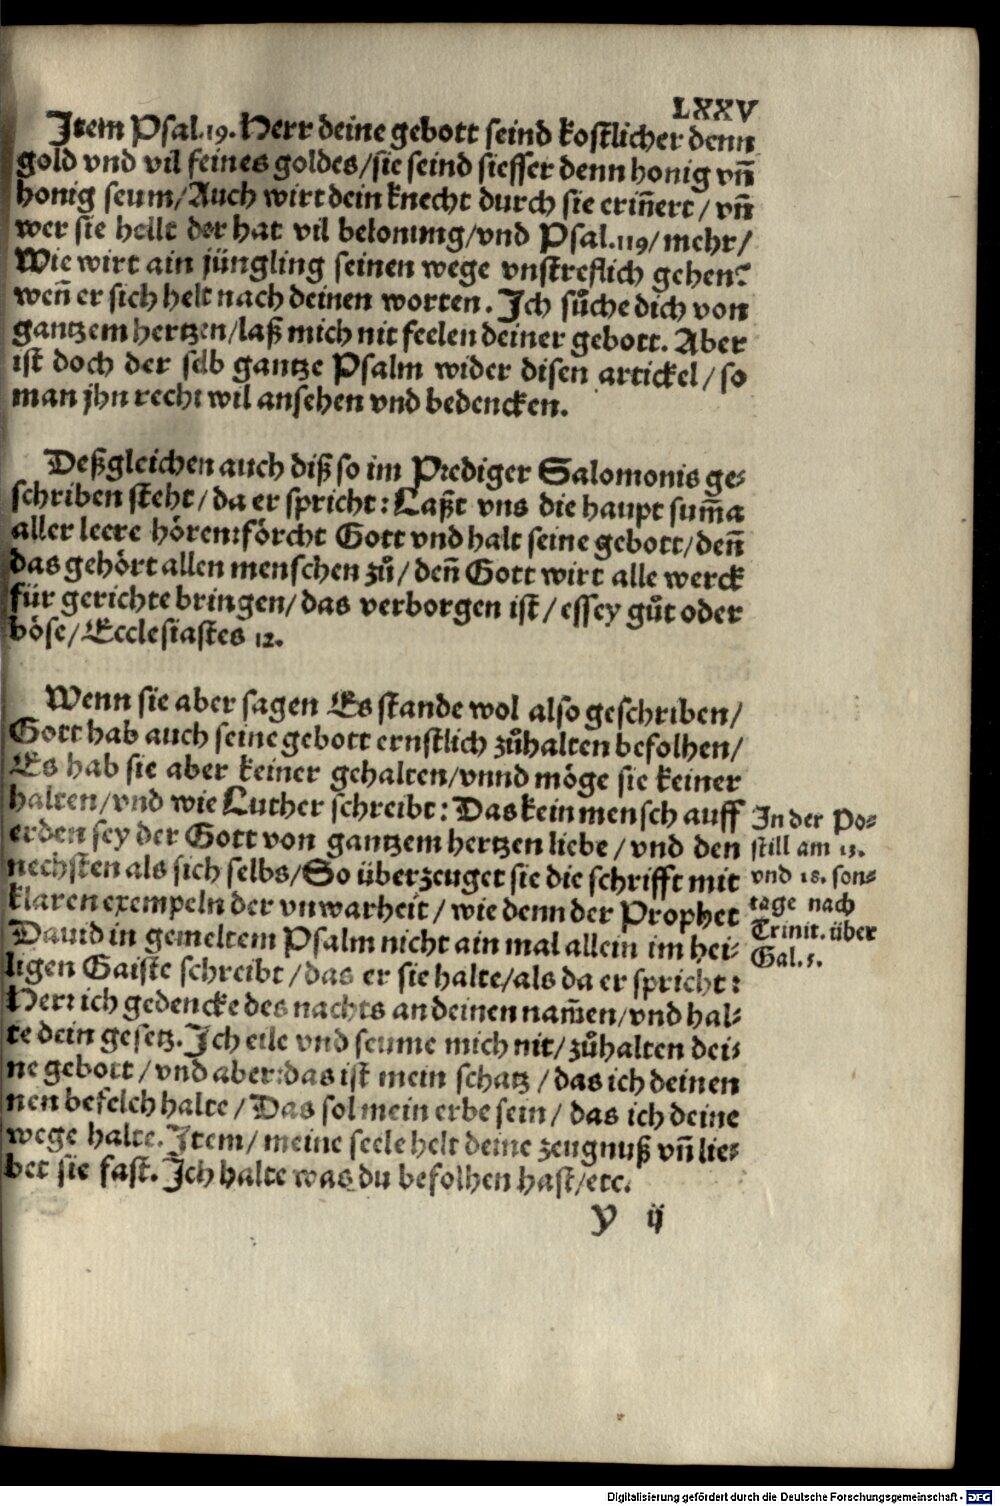 LXXV
Item Psal.19. Herr deine gebott seind kostlicher denn
gold vnd vil feines goldes/sie seind siesser denn honig vñ
honig seum/Auch wirt dein knecht durch sie eriñert/ vñ
wer sie hellt der hat vil belonung/vnd Psal.119/mehr/
Wie wirt ain jüngling seinen wege vnstreflich gehen?
weñ er sich helt nach deinen worten. Ich sůche dich von
gantzem hertzen/laß mich nit feelen deiner gebott. Aber
ist doch der selb gantze Psalm wider disen artickel/ so
man jhn recht wil ansehen vnd bedencken.
Deßgleichen auch diß so im Prediger Salomonis ge-
schriben steht/da er spricht: Laßt vns die haupt sum̃a
aller leere hören:förcht Gott vnd halt seine gebott/deñ
das gehört allen menschen zů/deñ Gott wirt alle werck
für gerichte bringen/das verborgen ist/essey gůt oder
böse/Ecclesiastes 12.
Wenn sie aber sagen Es stande wol also geschriben/
Gott hab auch seine gebott ernstlich zůhalten befolhen/
Es hab sie aber keiner gehalten/vnnd möge sie keiner
halten/vnd wie Luther schreibt: Das kein mensch auff
erden sey der Gott von gantzem hertzen liebe/vnd den
nechsten als sich selbs/So überzeuget sie die schrifft mit
klaren exempeln der vnwarheit/wie denn der Prophet
Dauid in gemeltem Psalm nicht ain mal allein im hei-
ligen Gaiste schreibt/das er sie halte/als da er spricht:
Herr ich gedencke des nachts an deinen nam̃en/vnd hal-
te dein gesetz. Ich eile vnd seume mich nit/zůhalten dei-
ne gebott/vnd aber:das ist mein schatz/das ich deinen
nen befelch halte/Das sol mein erbe sein/das ich deine
wege halte. Item/meine seele helt deine zeugnuß vñ lie-
bet sie fast. Ich halte was du befolhen hast/etc.
In der Po-
still am 13.
vnd 18. son-
tage nach
Trinit. über
Gal. 5.
y ij
Digitalisierung gefördert durch die Deutsche Forschungsgemeinschaft - DFG